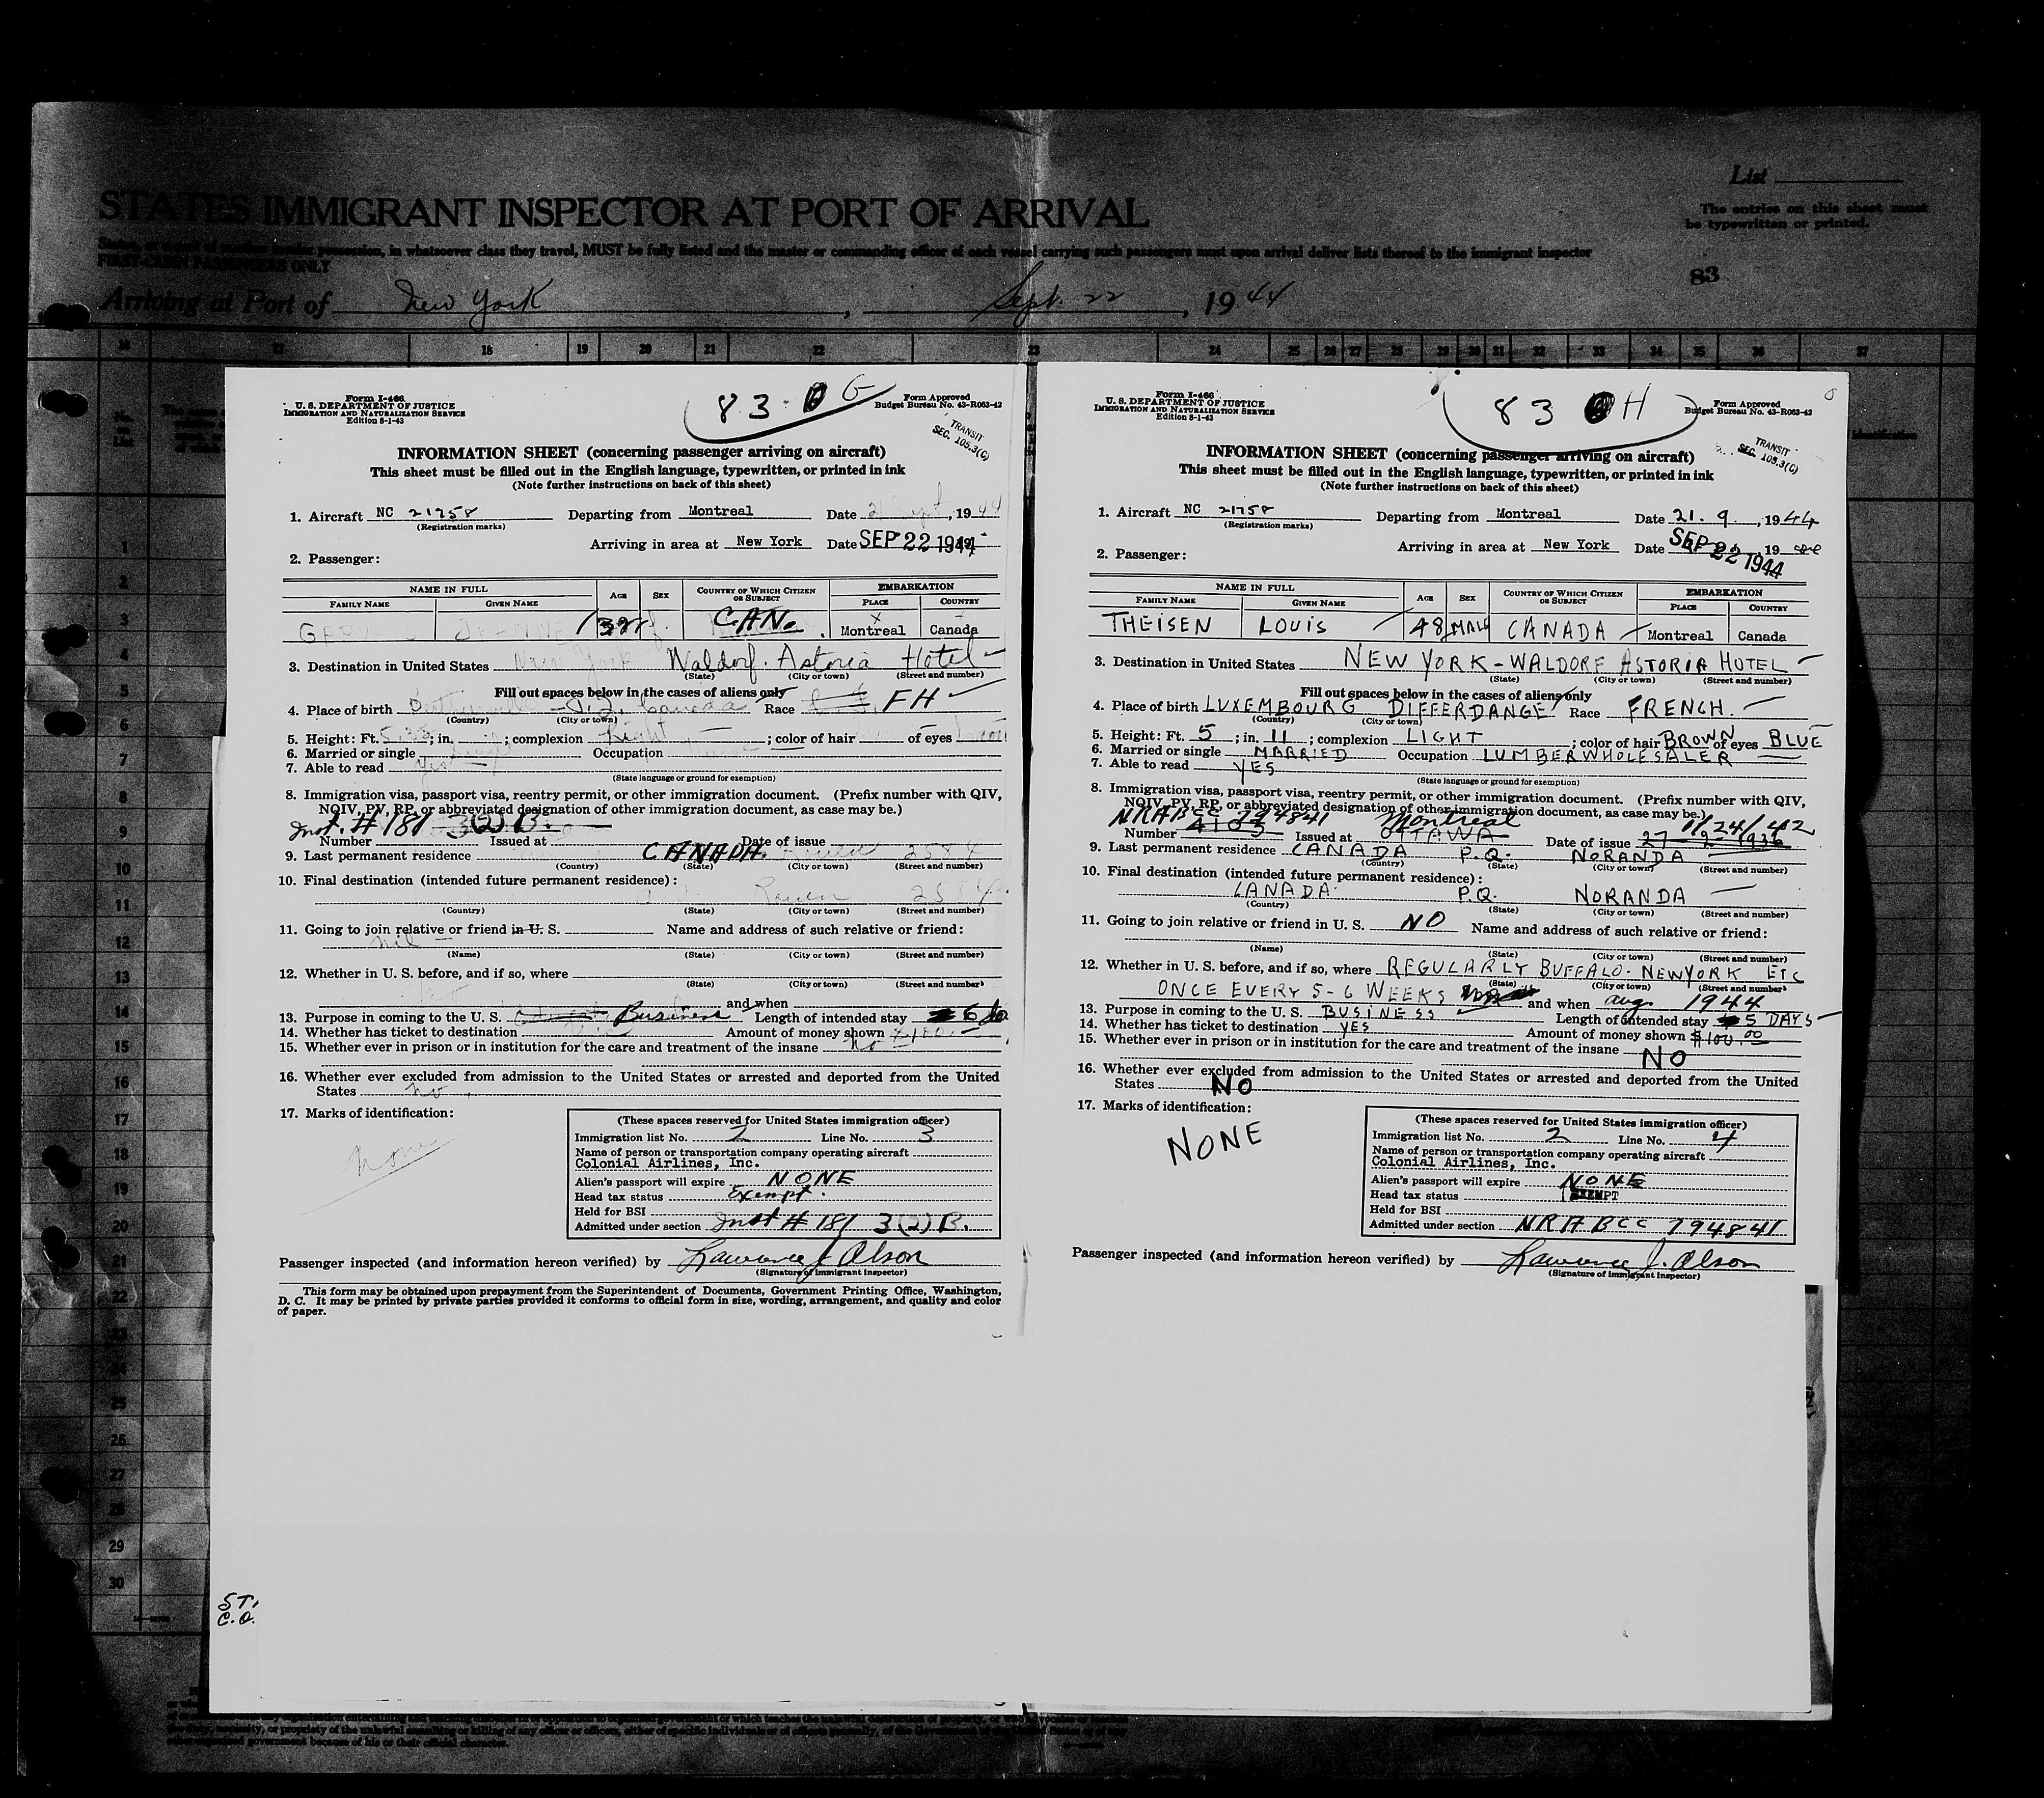 List
STATES IMMIGRANT INSPECTOR AT PORT OF ARRIVAL
The entries on this sheet must
be typewritten or printed.
possession, in whatsoever class they travel, MUST be fully listed and the master or commanding officer of each vessel carrying such passengers must upon arrival deliver lists thereof to the immigrant inspector
83
Arriving at Port of New York, Sept. 22, 1944
17 18 19 20 21 22 23 24 25 26 27 28 29 30 31 32 33 34 35 36 37
1
2
3
4
5
6
7
8
9
10
11
12
13
14
15
16
17
18
19
20
21
22
23
24
25
26
27
28
29
30
ST.
C.O.
Form I-466
U. S. DEPARTMENT OF JUSTICE
IMMIGRATION AND NATURALIZATION SERVICE
Edition 8-1-43
83 G
Form Approved
Budget Bureau No. 43-R063-42
TRANSIT
SEC. 105.3(C)
INFORMATION SHEET (concerning passenger arriving on aircraft)
This sheet must be filled out in the English language, typewritten, or printed in ink
(Note further instructions on back of this sheet)
1. Aircraft NC 21758 Departing from Montreal Date 21 Sept, 1944
(Registration marks)
Arriving in area at New York Date SEP 22 1944
2. Passenger:
NAME IN FULL AGE SEX COUNTRY OF WHICH CITIZEN OR SUBJECT EMBARKATION
FAMILY NAME GIVEN NAME PLACE COUNTRY
CAN. Montreal Canada
3. Destination in United States New York Waldorf-Astoria Hotel
(State) (City or town) (Street and number)
Fill out spaces below in the cases of aliens only
4. Place of birth Canada Race FH
(Country) (City or town)
5. Height: Ft. ; in. ; complexion light ; color of hair of eyes
6. Married or single Occupation
7. Able to read Yes
(State language or ground for exemption)
8. Immigration visa, passport visa, reentry permit, or other immigration document. (Prefix number with QIV,
NQIV, PV, RP, or abbreviated designation of other immigration document, as case may be.)
Inst. # 181 3(2) B.
Number Issued at Date of issue
9. Last permanent residence CANADA. 2584
(Country) (State) (City or town) (Street and number)
10. Final destination (intended future permanent residence):
2584
(Country) (State) (City or town) (Street and number)
11. Going to join relative or friend in U. S. Name and address of such relative or friend:
nil
(Name) (State) (City or town) (Street and number)
12. Whether in U. S. before, and if so, where
(State) (City or town) (Street and number)
no and when
13. Purpose in coming to the U. S. Business Length of intended stay 6
14. Whether has ticket to destination Amount of money shown
15. Whether ever in prison or in institution for the care and treatment of the insane no
16. Whether ever excluded from admission to the United States or arrested and deported from the United
States no
17. Marks of identification:
none
(These spaces reserved for United States immigration officer)
Immigration list No. 2 Line No. 3
Name of person or transportation company operating aircraft
Colonial Airlines, Inc.
Alien's passport will expire NONE
Head tax status Exempt.
Held for BSI
Admitted under section Inst # 181 3(2) B.
Passenger inspected (and information hereon verified) by Lawrence J. Olson
(Signature of immigrant inspector)
This form may be obtained upon prepayment from the Superintendent of Documents, Government Printing Office, Washington,
D. C. It may be printed by private parties provided it conforms to official form in size, wording, arrangement, and quality and color
of paper.
Form I-466
U. S. DEPARTMENT OF JUSTICE
IMMIGRATION AND NATURALIZATION SERVICE
Edition 8-1-43
83 H
Form Approved
Budget Bureau No. 43-R063-42
TRANSIT
SEC. 105.3(C)
INFORMATION SHEET (concerning passenger arriving on aircraft)
This sheet must be filled out in the English language, typewritten, or printed in ink
(Note further instructions on back of this sheet)
1. Aircraft NC 21758 Departing from Montreal Date 21. 9, 1944
(Registration marks)
Arriving in area at New York Date SEP 22 1944 19
2. Passenger:
NAME IN FULL AGE SEX COUNTRY OF WHICH CITIZEN OR SUBJECT EMBARKATION
FAMILY NAME GIVEN NAME PLACE COUNTRY
THEISEN LOUIS 48 MALE CANADA Montreal Canada
3. Destination in United States NEW YORK - WALDORF ASTORIA HOTEL
(State) (City or town) (Street and number)
Fill out spaces below in the cases of aliens only
4. Place of birth LUXEMBOURG DIFFERDANGE Race FRENCH.
(Country) (City or town)
5. Height: Ft. 5 ; in. 11 ; complexion LIGHT ; color of hair BROWN of eyes BLUE
6. Married or single MARRIED Occupation LUMBER WHOLESALER
7. Able to read YES
(State language or ground for exemption)
8. Immigration visa, passport visa, reentry permit, or other immigration document. (Prefix number with QIV,
NQIV, PV, RP, or abbreviated designation of other immigration document, as case may be.)
NRABCC 794841 Montreal 11/24/42
Number 4103 Issued at OTTAWA Date of issue 27-2-1936
9. Last permanent residence CANADA P.Q. NORANDA
(Country) (State) (City or town) (Street and number)
10. Final destination (intended future permanent residence):
CANADA. P.Q. NORANDA
(Country) (State) (City or town) (Street and number)
11. Going to join relative or friend in U. S. NO Name and address of such relative or friend:
(Name) (State) (City or town) (Street and number)
12. Whether in U. S. before, and if so, where REGULARLY BUFFALO. NEW YORK ETC
(State) (City or town) (Street and number)
ONCE EVERY 5-6 WEEKS and when Aug. 1944
13. Purpose in coming to the U. S. BUSINESS Length of intended stay 5 DAYS
14. Whether has ticket to destination YES Amount of money shown $100.00
15. Whether ever in prison or in institution for the care and treatment of the insane NO
16. Whether ever excluded from admission to the United States or arrested and deported from the United
States NO
17. Marks of identification:
NONE
(These spaces reserved for United States immigration officer)
Immigration list No. 2 Line No. 4
Name of person or transportation company operating aircraft
Colonial Airlines, Inc.
Alien's passport will expire NONE
Head tax status EXEMPT
Held for BSI
Admitted under section NRABCC 794841
Passenger inspected (and information hereon verified) by Lawrence J. Olson
(Signature of immigrant inspector)